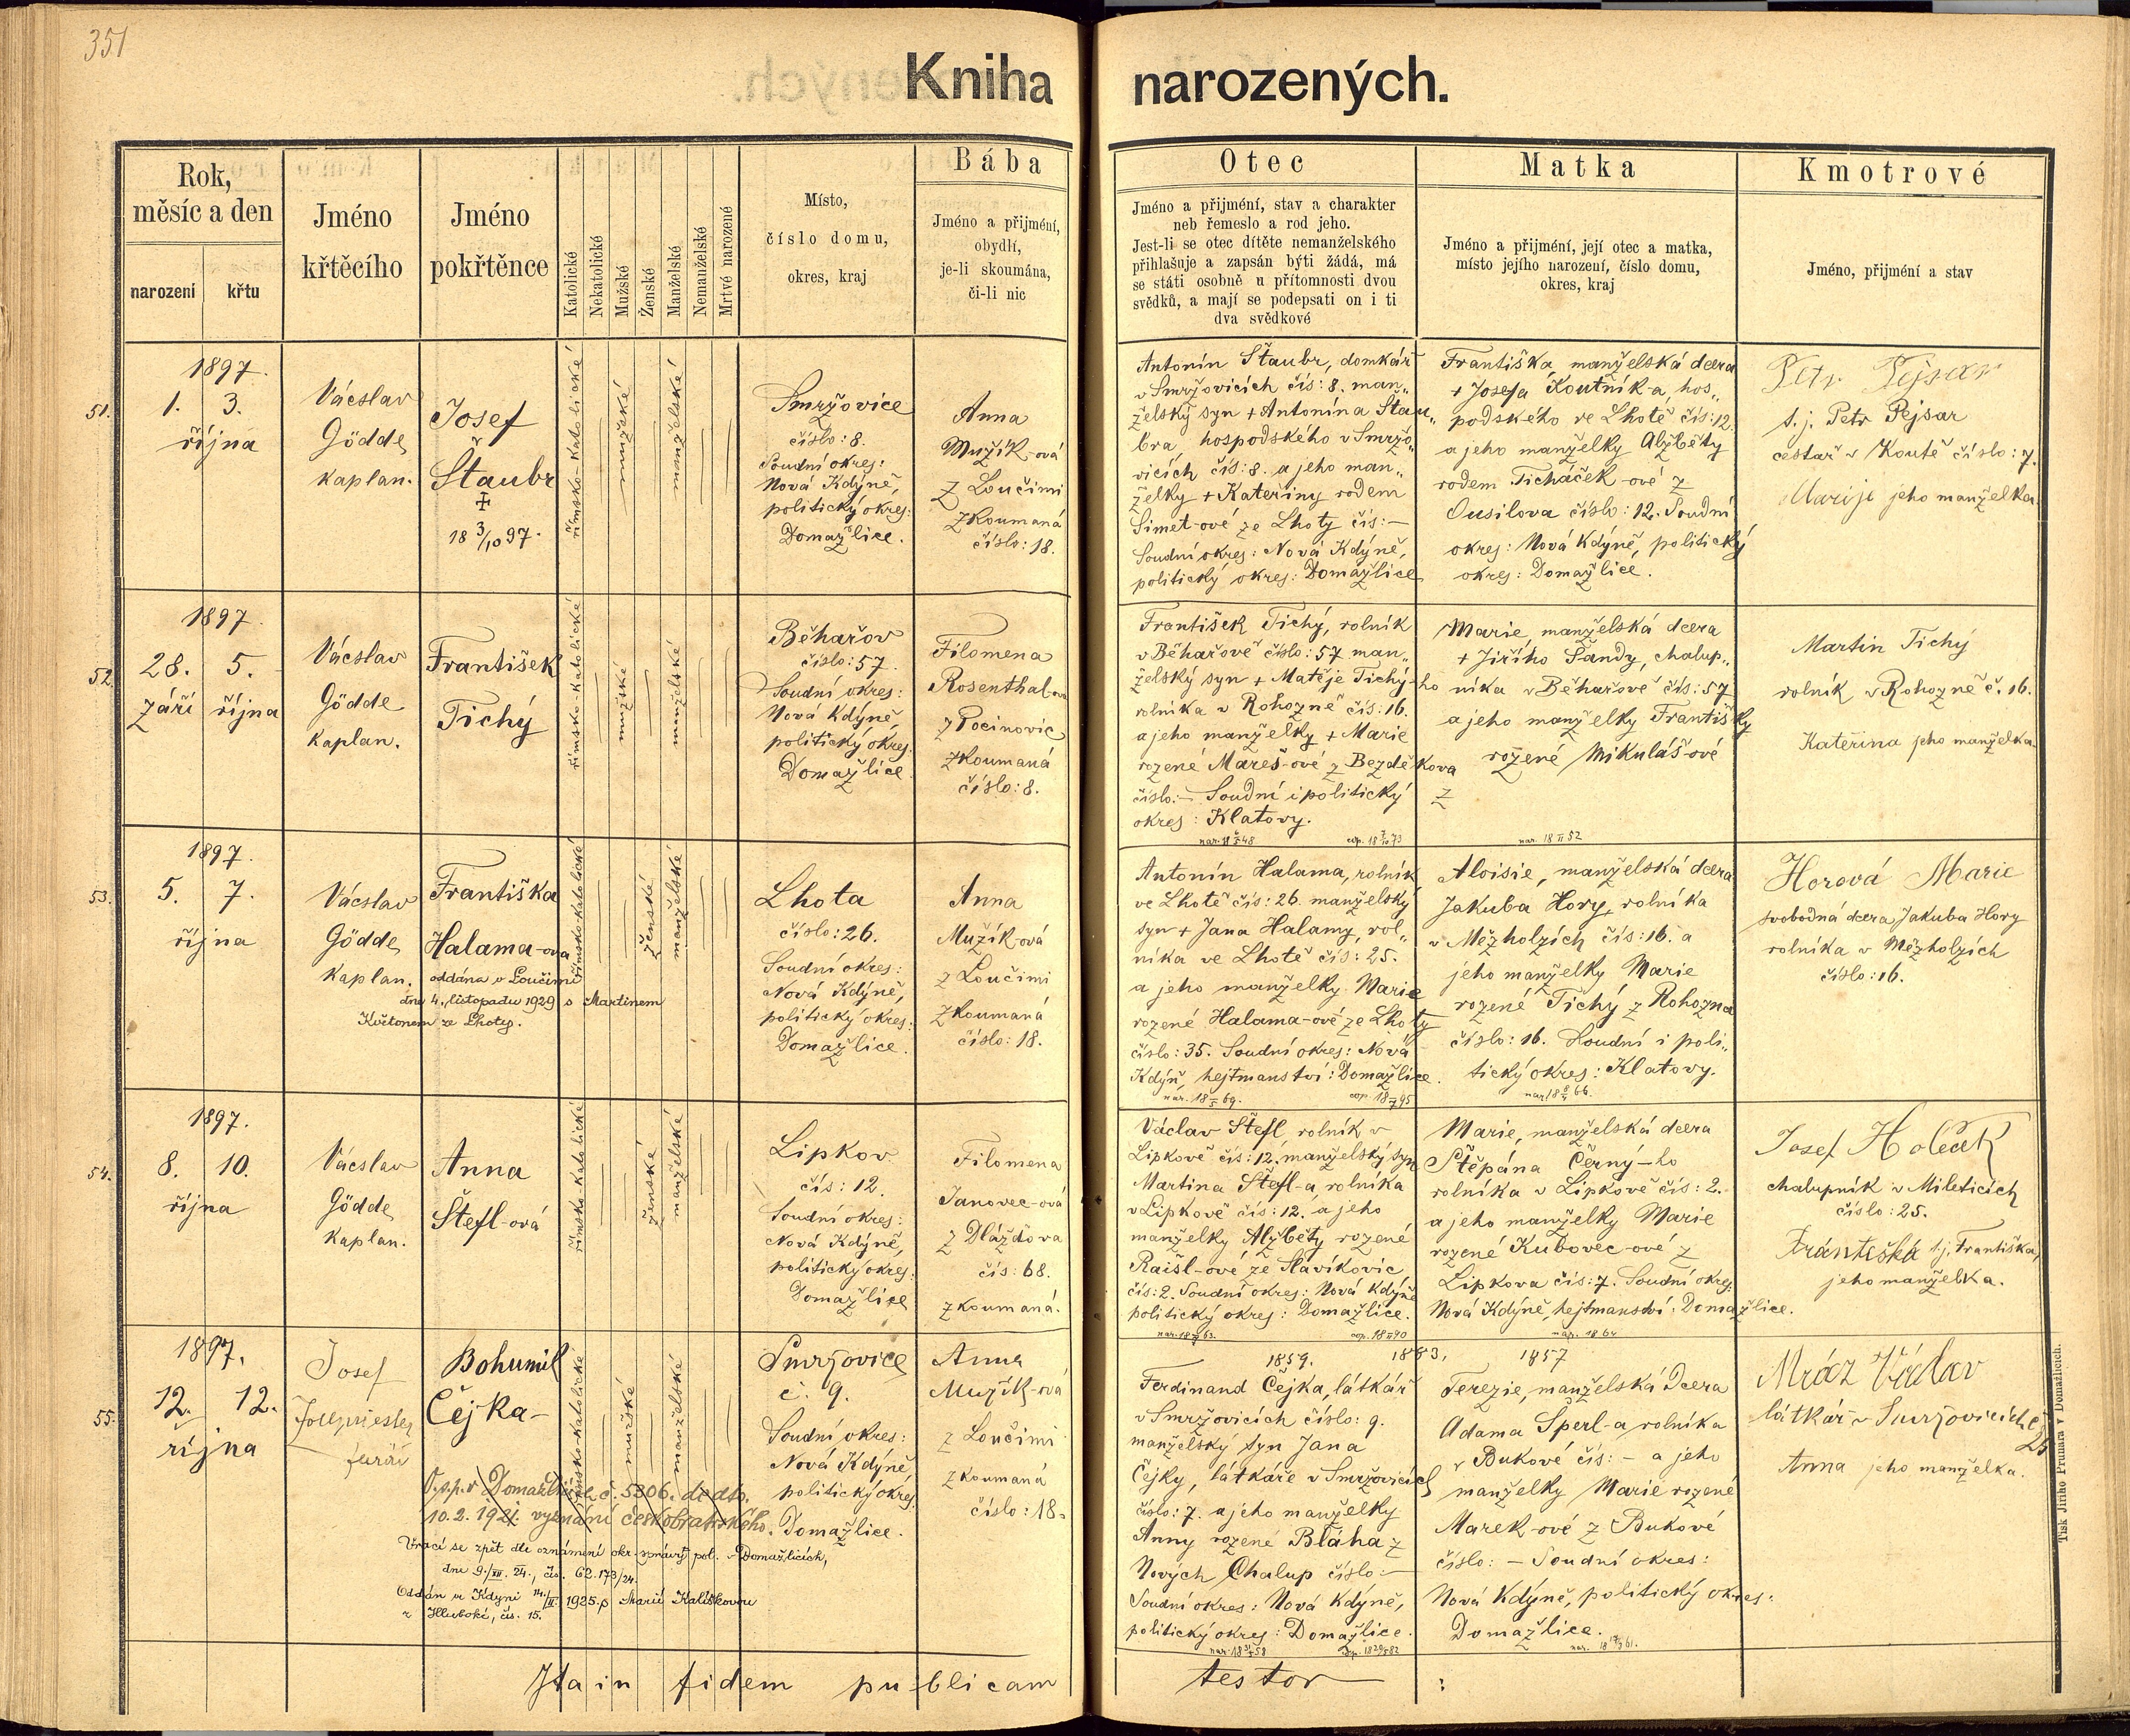 351
Kniha narozených.
Rok,
měsíc a den
narození
křtu
Jméno
křtěcího
Jméno
pokřtěnce
Katolické
Nekatolické
Mužské
Ženské
Manželské
Nemanželské
Mrtvé narozené
Místo,
číslo domu,
okres, kraj
Bába
Jméno a přijmení,
obydlí,
je-li skoumána,
či-li nic
Otec
Jméno a přijmení, stav a charakter
neb řemeslo a rod jeho.
Jest-li se otec dítěte nemanželského
přihlašuje a zapsán býti žádá, má
se státi osobně u přítomnosti dvou
svědků, a mají se podepsati on i ti
dva svědkové
Matka
Jméno a přijmení, její otec a matka,
místo jejího narození, číslo domu,
okres, kraj
Kmotrové
Jméno, přijmení a stav
51.
1897.
1. 3.
října
Václav
Gödde
kaplan.
Josef
Štaubr
‡
18 3/10 97.
římsko-katolické
mužské
manželské
Smržovice
číslo: 8.
Soudní okres:
Nová Kdýně,
politický okres:
Domažlice.
Anna
Mužík-ová
z Loučimi
zkoumaná
číslo: 18.
Antonín Štaubr, domkář
v Smržovicích čís: 8. man„
želský syn + Antonína Štau„
bra, hospodského v Smržo„
vicích čís: 8. a jeho man„
želky + Kateřiny rodem
Simet-ové ze Lhoty čís: —
Soudní okres: Nová Kdýně,
politický okres: Domažlice
Františka, manželská dcera
+ Josefa Koutník-a, hos„
podského ve Lhotě čís: 12.
a jeho manželky Alžběty
rodem Ticháček-ové z
Ousilova číslo: 12. Soudní
okres: Nová Kdýně, politický
okres: Domažlice.
Petr Pejsar
t. j. Petr Pejsar
cestař v Koutě číslo: 7.
Marije jeho manželka
52.
1897.
28. 5.
září října
Václav
Gödde
kaplan.
František
Tichý
římsko-katolické
mužské
manželské
Běhařov
číslo: 57.
Soudní okres:
Nová Kdýně,
politický okres:
Domažlice
Filomena
Rosenthal-ová
z Pocinovic
zkoumaná
číslo: 8.
František Tichý, rolník
v Běhařově číslo: 57 man„
želský syn + Matěje Tichý-ho
rolníka v Rohozně čís: 16.
a jeho manželky + Marie
rozené Mareš-ové z Bezděkova
číslo: — Soudní i politický
okres: Klatovy.
Marie, manželská dcera
+ Jiřího Sandy, chalup„
níka v Běhařově čís: 57
a jeho manželky Františky
rožené Mikuláš-ové
z
nar. 18 II 52
Martin Tichý
rolník v Rohozně č. 16.
Kateřina jeho manželka.
53.
1897.
5. 7.
října
Václav
Gödde
kaplan.
Františka
Halama-ova
oddána v Loučimi
dne 4. listopadu 1929 s Martinem
Květonem ze Lhoty.
římsko katolické
ženské
manželské
Lhota
číslo: 26.
Soudní okres:
Nová Kdýně,
politický okres:
Domažlice.
Anna
Mužík-ová
z Loučimi
zkoumaná
číslo: 18.
Antonín Halama, rolník
ve Lhotě čís: 26. manželský
syn + Jana Halamy, rol„
níka ve Lhotě čís: 25.
a jeho manželky Marie
rozené Halama-ové ze Lhoty
číslo: 35. Soudní okres: Nová
Kdýň, hejtmanství: Domažlice.
Aloisie, manželská dcera
Jakuba Hory, rolníka
v Měžholzích čís: 16. a
jeho manželky Marie
rozené Tichý z Rohozna
číslo: 16. Soudní i poli„
tický okres: Klatovy.
Horová Marie
svobodná dcera Jakuba Hory
rolníka v Měžholzích
číslo: 16.
54.
1897.
8. 10.
října
Václav
Gödde
kaplan.
Anna
Štefl-ová
římsko katolické
ženské
manželské
Lipkov
čís: 12.
Soudní okres:
Nová Kdýně,
politický okres:
Domažlice
Filomena
Janovec-ová
z Dlažďova
čís: 68.
zkoumaná.
Václav Štefl, rolník v
Lipkově čís: 12. manželský syn
Martina Štefl-a, rolníka
v Lipkově čís: 12. a jeho
manželky Alžběty rozené
Raišl-ové ze Slavíkovic
čís: 2. Soudní okres: Nová Kdýně
politický okres: Domažlice.
Marie, manželská dcera
Štěpána Černý-ho
rolníka v Lipkově čís: 2.
a jeho manželky Marie
rozené Kubovec-ové z
Lipkova čís: 7. Soudní okres:
Nová Kdýně, hejtmanství: Domažlice.
Josef Holeček
chalupník v Mileticích
číslo: 25.
Františka t.j. Františka,
jeho manželka.
55.
1897.
12. 12.
října
Josef
farář
Bohumil
Čejka
římsko-katolické
mužské
manželské
O.s.p. v Domažlicích č. 5806. de dto.
10. 2. 1921. vyznání českobratrského.
Vrací se zpět dle oznámení okr. správy pol. v Domažlicích,
dne 9./XII. 24., čís. 62.173/24.
Oddán ve Kdyni 14./II. 1925 s Marií Kališkovou
z Hluboké, čís. 15.
Smržovice
č. 9.
Soudní okres:
Nová Kdýně,
politický okres:
Domažlice.
Anna
Mužík-ová
z Loučimi
zkoumaná
číslo: 18.
1859. 1883.
Ferdinand Čejka, látkář
v Smržovicích číslo: 9.
manželský syn Jana
Čejky, látkáře v Smržovicích
číslo: 7. a jeho manželky
Anny rozené Bláha z
Nových Chalup číslo: —
Soudní okres: Nová Kdýně,
politický okres: Domažlice.
1857
Terezie, manželská dcera
Adama Šperl-a, rolníka
v Bukové čís: — a jeho
manželky Marie rozené
Marek-ové z Bukové
číslo: — Soudní okres:
Nová Kdýně, politický okres:
Domažlice.
Mráz Václav
látkář v Smržovicích č.
25
Anna jeho manželka.
Ita in fidem publicam testor
Tisk Jiřího Prunara v Domažlicích.